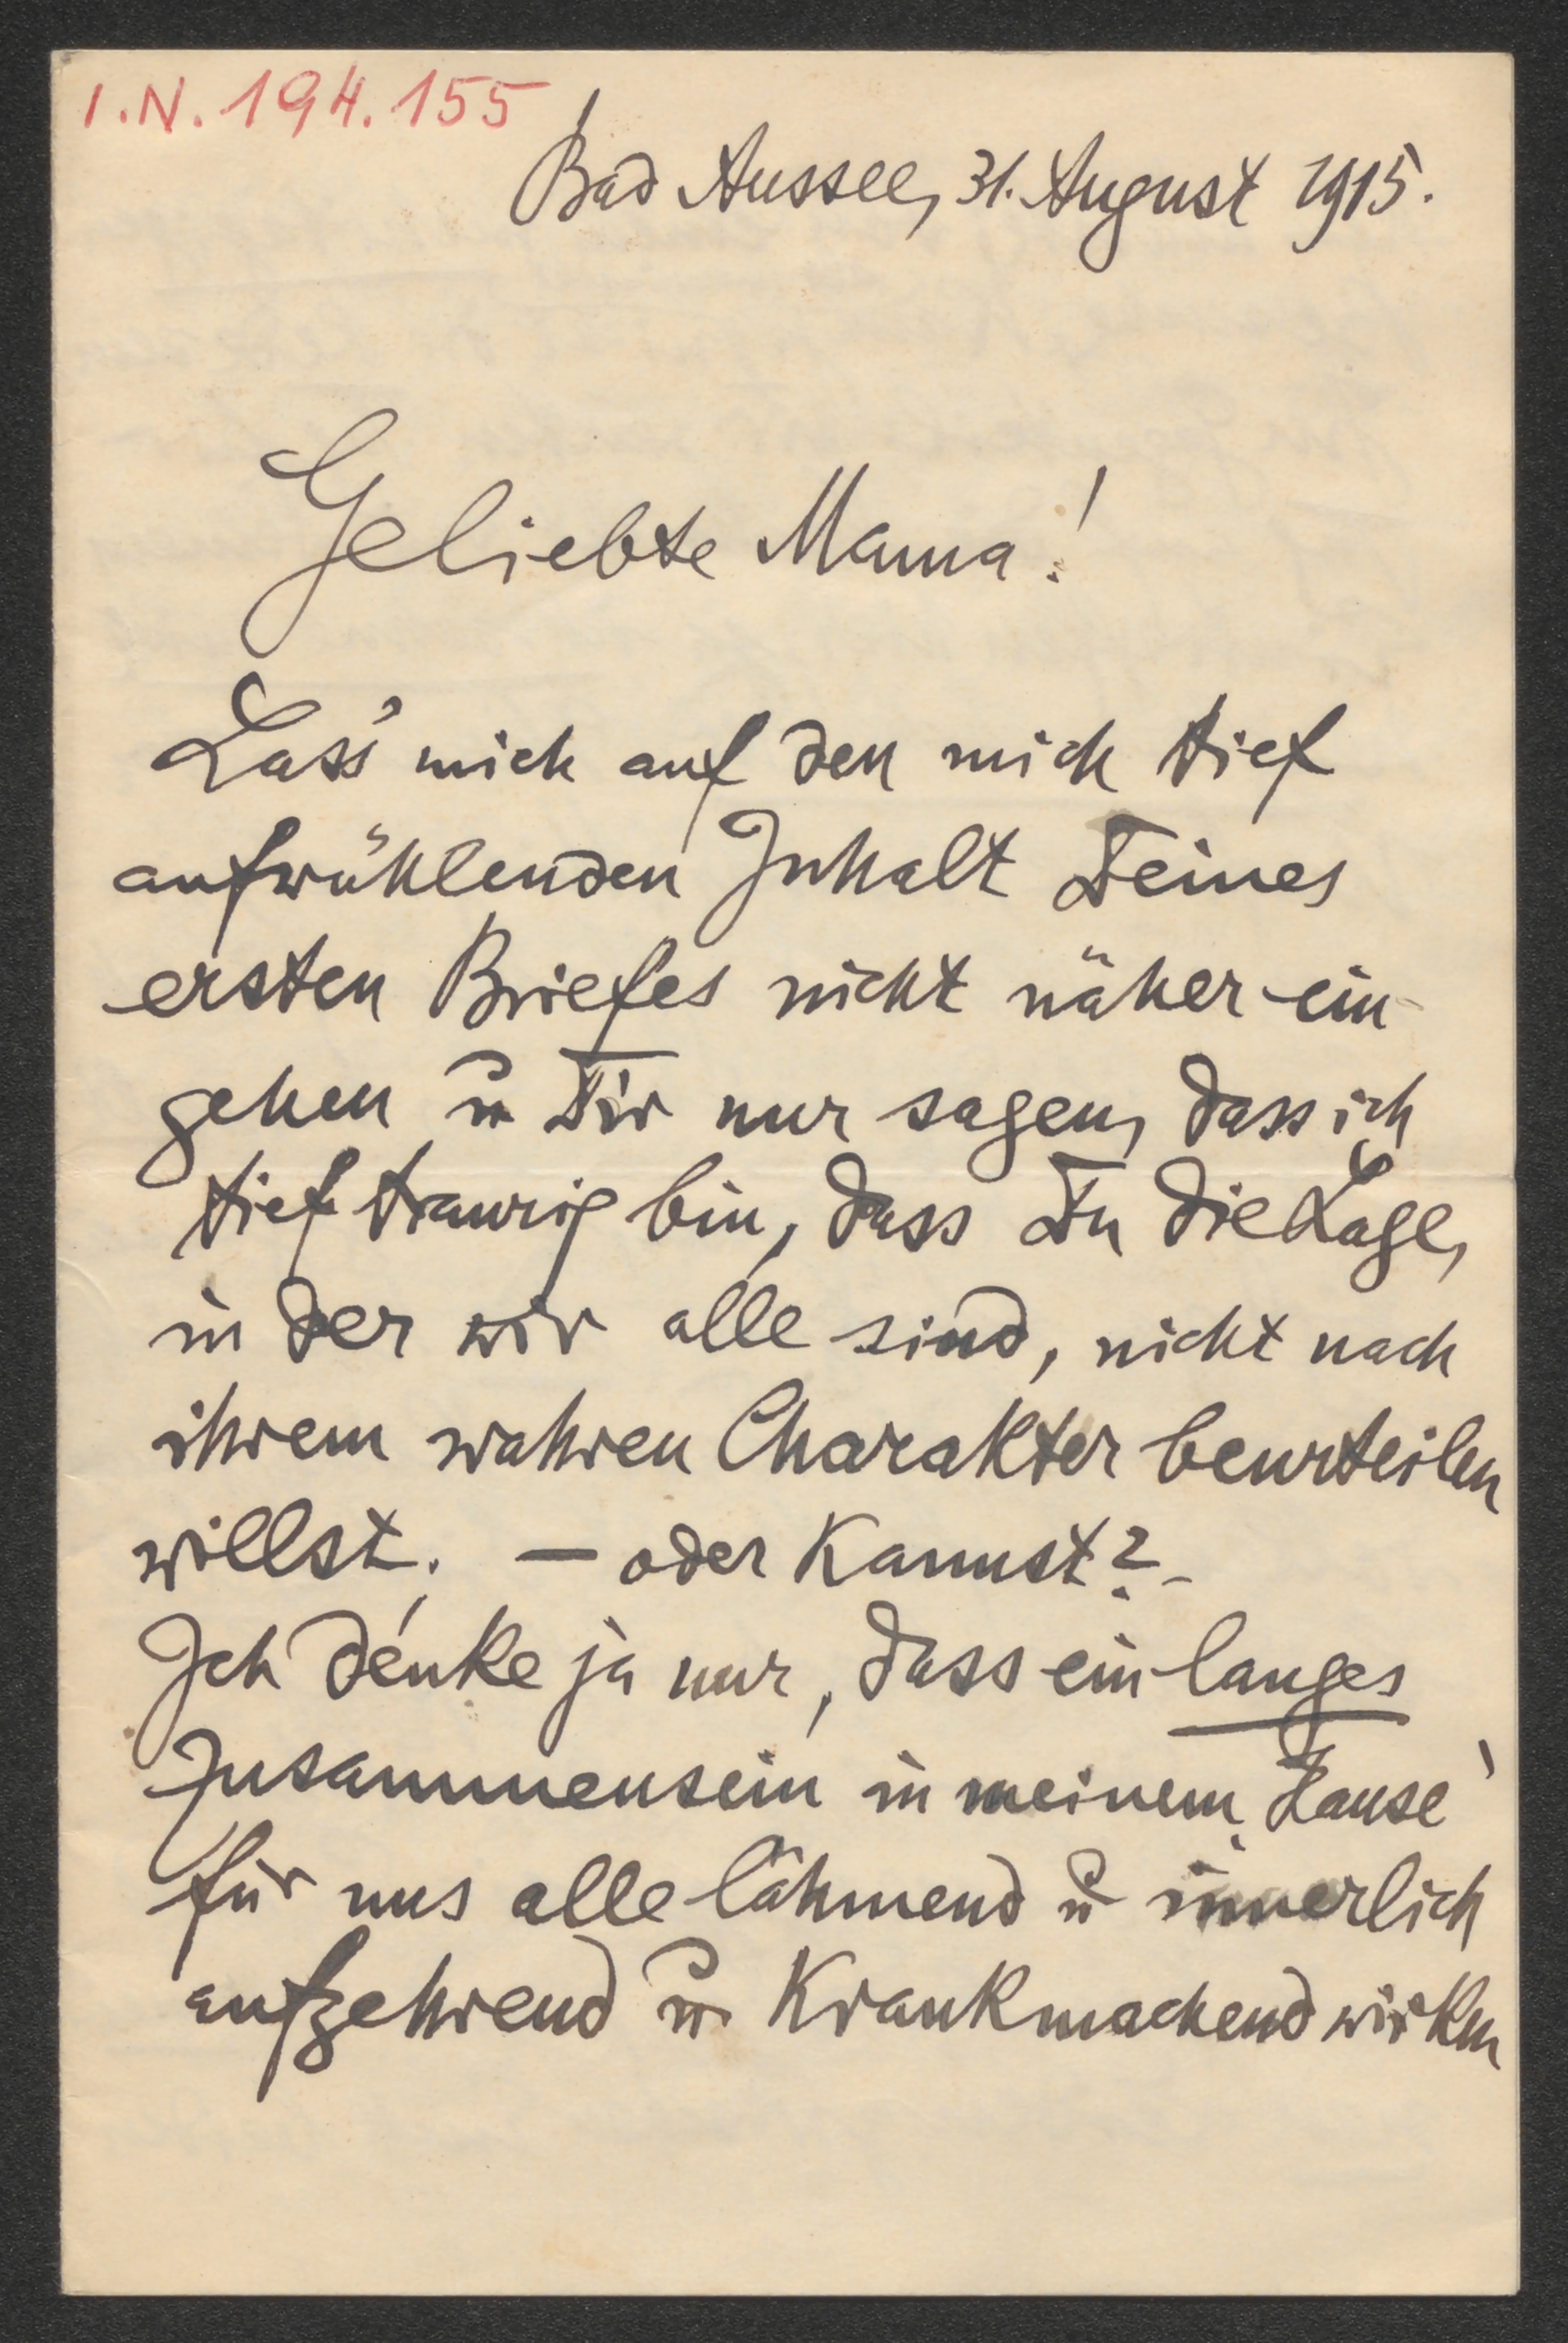 I.N. 194.155
Bad Aussee, 31. August 1915.
Geliebte Mama!
Lass' mich auf den mich tief
aufwühlenden Inhalt Deines
ersten Briefes nicht näher ein-
gehen u Dir nur sagen, dass ich
tief traurig bin, dass Du die Lage,
in der wir alle sind, nicht nach
ihrem wahren Charakter beurteilen
willst. — oder kannst? -
Ich denke ja nur, dass ein langes
Zusammensein in meinem Hause
für uns alle lähmend u innerlich
aufzehrend u krankmachend wirken